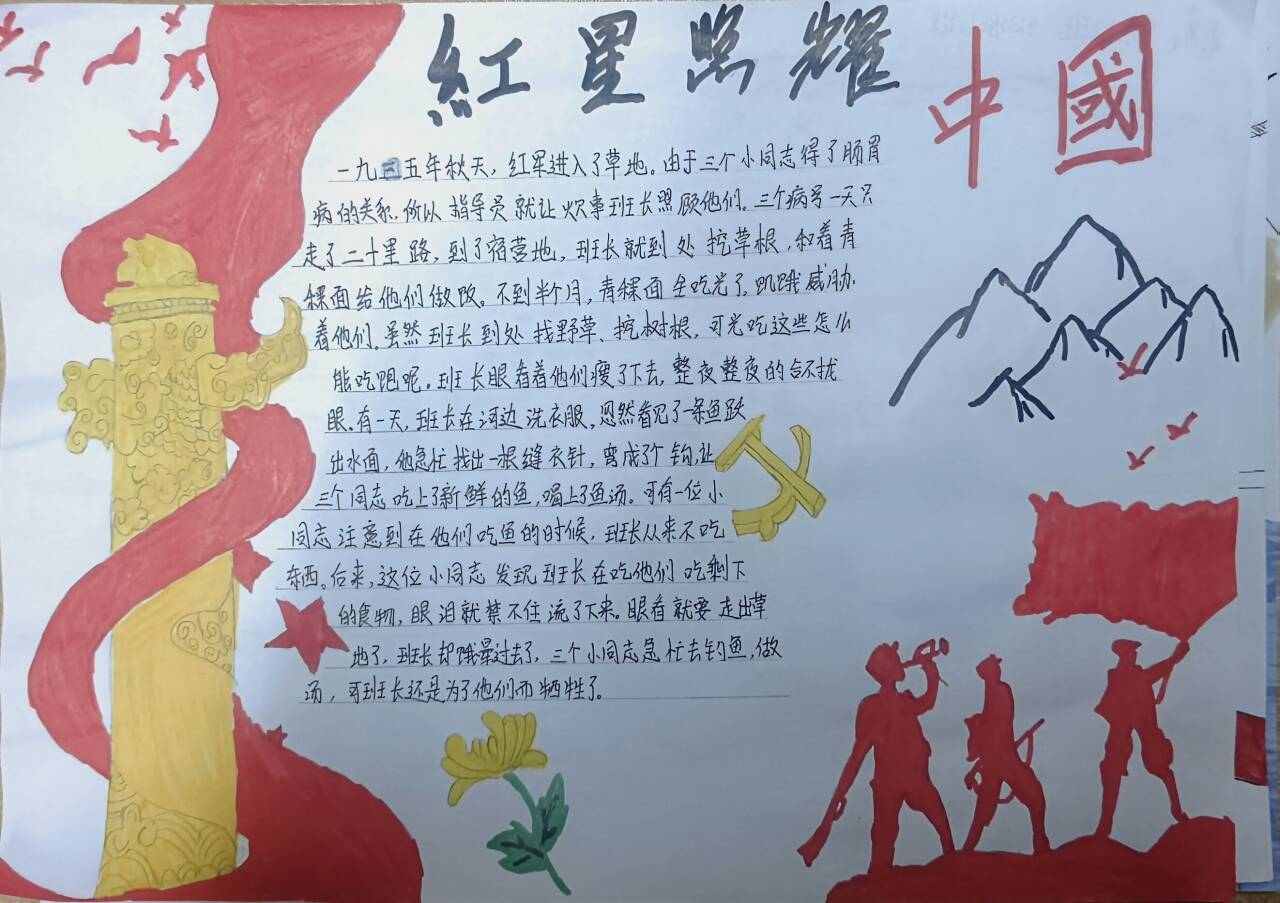 紅星照耀中國
一九三五年秋天，红军进入了草地。由于三个小同志得了肠胃
病的关系，所以指导员就让炊事班长照顾他们。三个病号一天只
走了二十里路，到了宿营地，班长就到处挖草根，和着青
稞面给他们做饭。不到半个月，青稞面全吃光了，饥饿威胁
着他们。虽然班长到处找野草、挖树根，可光吃这些怎么
能吃饱呢。班长眼看着他们瘦了下去，整夜整夜的合不拢
眼。有一天，班长在河边洗衣服，忽然看见了一条鱼跃
出水面，他急忙找出一根缝衣针，弯成了个钩，让
三个同志吃上了新鲜的鱼，喝上了鱼汤。可有一位小
同志注意到在他们吃鱼的时候，班长从来不吃
东西。后来，这位小同志发现班长在吃他们吃剩下
的食物，眼泪就禁不住流了下来。眼看就要走出草
地了，班长却饿晕过去了，三个小同志急忙去钓鱼，做
汤，可班长还是为了他们而牺牲了。